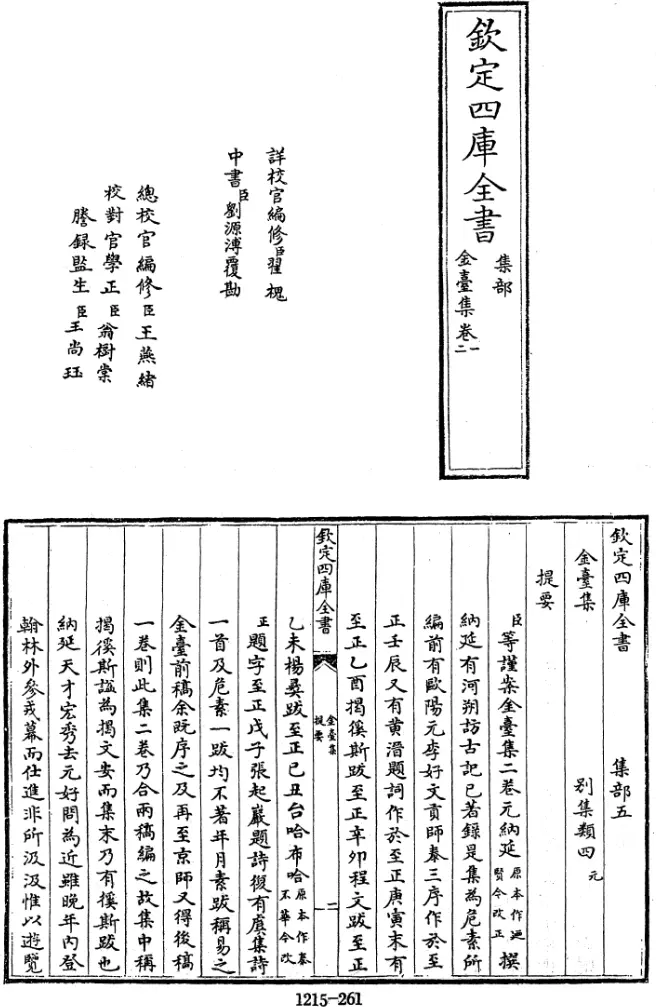 欽定四庫全書
集部
金臺集卷一二
詳校官編修臣翟槐
中書臣劉源溥覆勘
總校官編修臣王燕緒
校對官學正臣翁樹棠
謄録監生臣王尚珏
欽定四庫全書 集部五
金臺集 别集類四元
提要
臣等謹案金臺集二卷元納延原本作廼賢今改正撰
納延有河朔訪古記已著錄是集為危素所
編前有歐陽元李好文貢師泰三序作於至
正壬辰又有黄溍題詞作於至正庚寅末有
至正乙酉揭傒斯跋至正辛卯程文跋至正
欽定四庫全書 金臺集提要 二
乙未楊彝跋至正己丑台哈布哈原本作泰不華今改
正題字至正戊子張起巖題詩復有虞集詩
一首及危素一跋均不著年月素跋稱易之
金臺前稿余既序之及再至京師又得後稿
一卷則此集二卷乃合兩稿編之故集中稱
揭傒斯諡為揭文安而集末乃有傒斯跋也
納延天才宏秀去元好問為近雖晚年内登
翰林外參戎幕而仕進非所汲汲惟以遊覽
1215-261